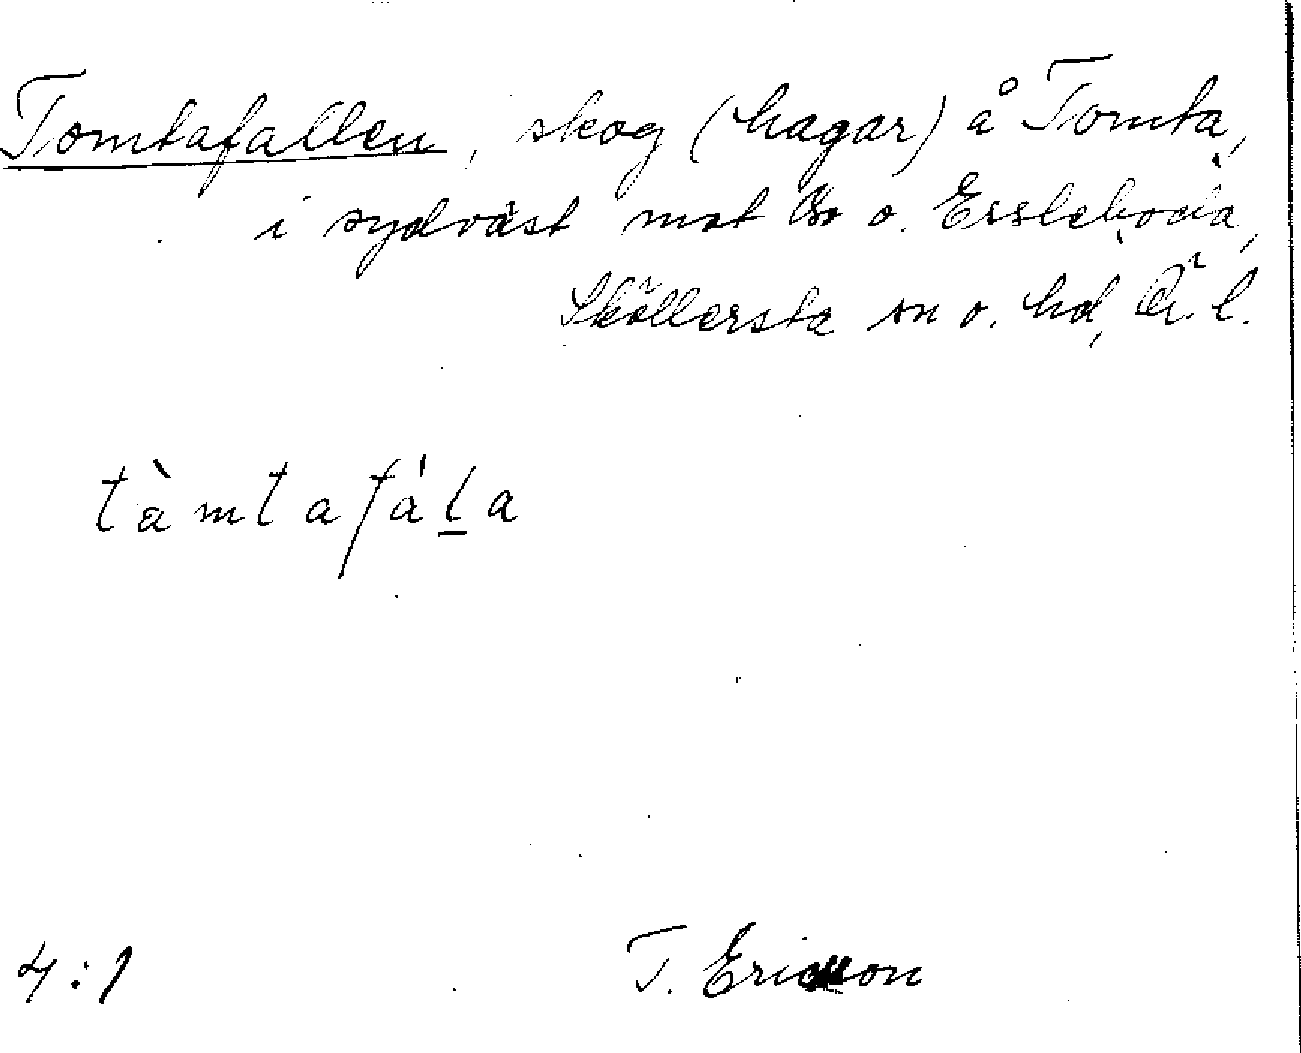 Tomtafallen, skog (hagar) å Tomta,
i sydväst mot Ö o. Ersleboda,
Sköllersta sn o. hd, Ö.l.
tàmtafáḻa
4:1
T. Ericsson